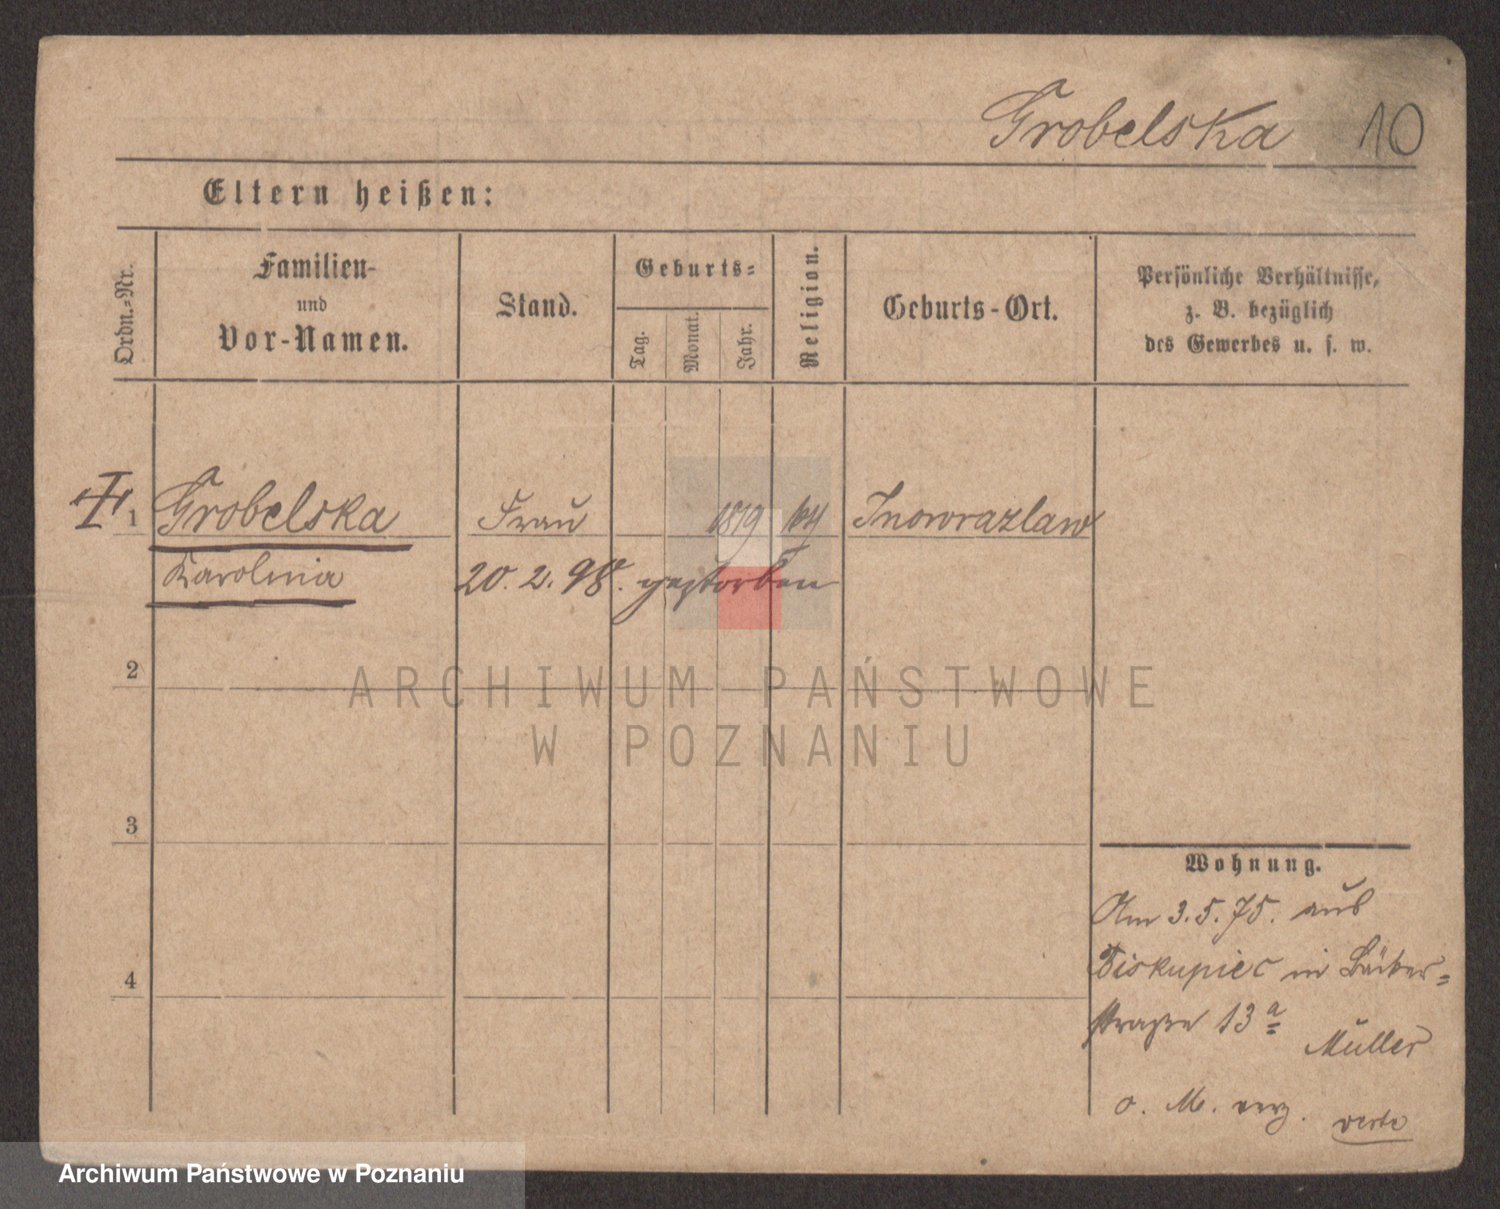 Grobelska 10
Eltern heißen:
Ordn.-Nr.
Familien-
und
Vor-Namen.
Stand.
Geburts-
Tag.
Monat.
Jahr.
Religion.
Geburts-Ort.
Persönliche Verhältnisse,
z. B. bezüglich
des Gewerbes u. s. w.
1 Grobelska Frau 1819 kth Inowrazlaw
Karolina 20. 2. 98. gestorben
2
ARCHIWUM PAŃSTWOWE
W POZNANIU
3
Wohnung.
Am 3.5.75. aus
Biskupiec in Bäcker-
4
straße 13a
Müller
o. M. verz. verte
Archiwum Państwowe w Poznaniu